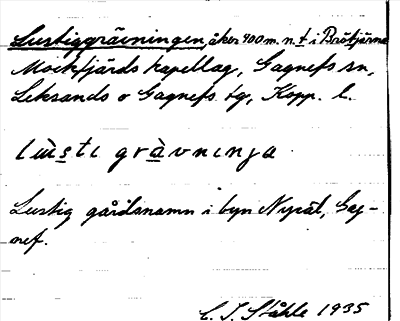 Lustiggrävningen, åker 400 m. n. t i Brötjärna
Mockfjärds kapellag, Gagnefs sn,
Leksands o Gagnefs tg, Kopp. l.
lùsti gràvnınja
Lustig gårdsnamn i byn Nysät, Gag-
nef.
C. I. Ståhle 1935